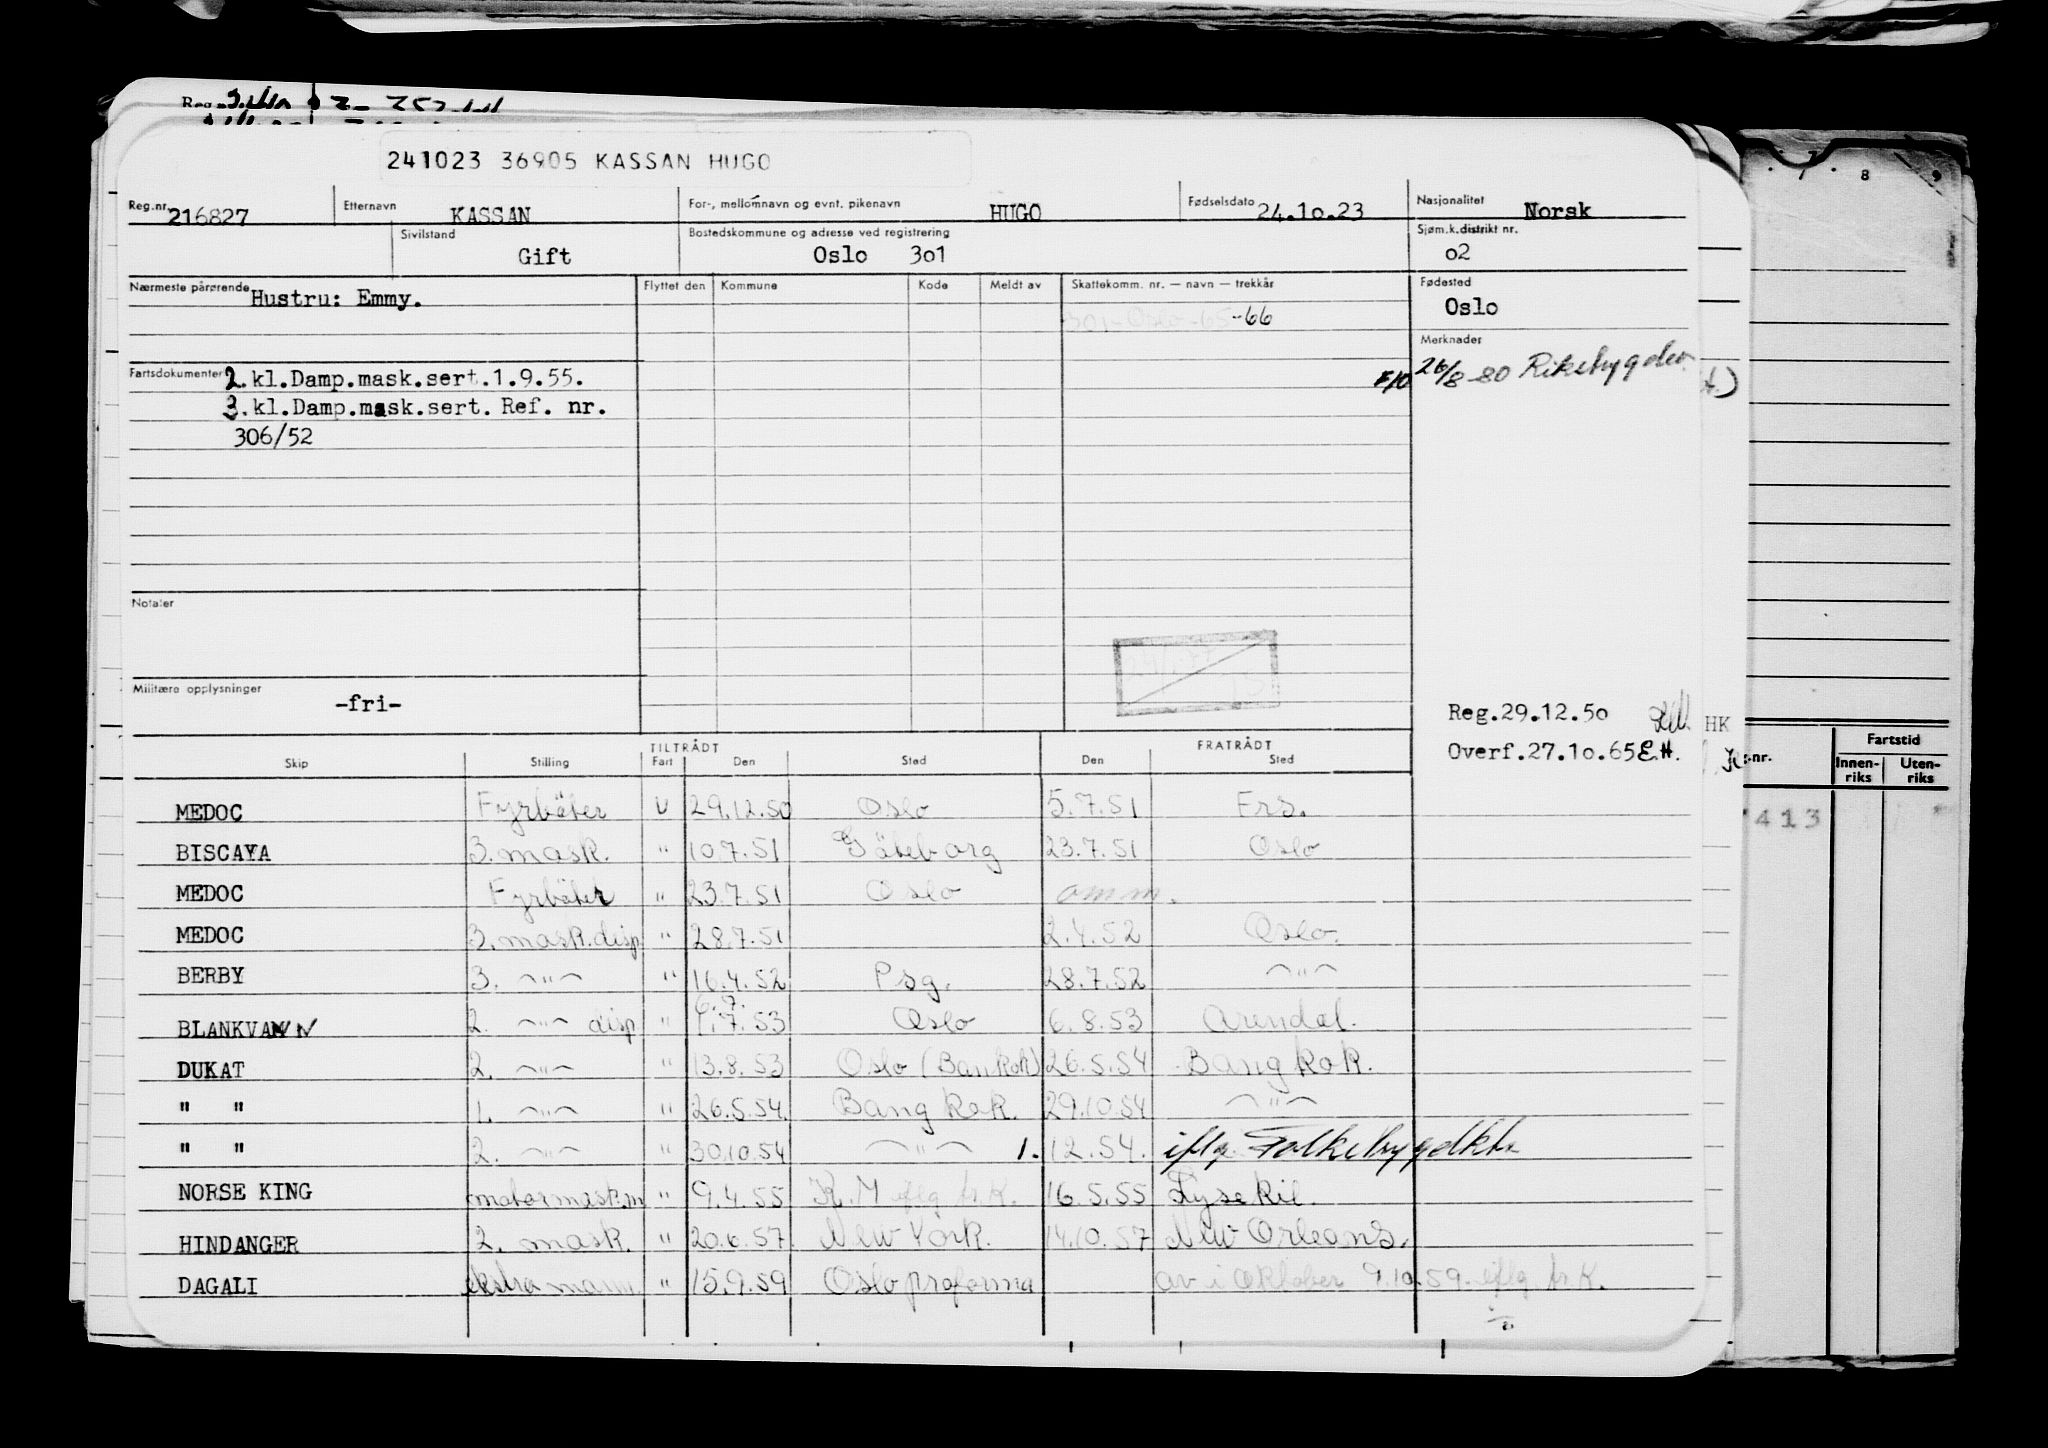 241023 36905 KASSAN HUGO
Reg.nr. 216827 Etternavn KASSAN For-, mellomnavn og evnt. pikenavn HUGO Fødselsdato 24.10.23 Nasjonalitet Norsk
Sivilstand Gift Bostedskommune og adresse ved registrering Oslo 301 Sjøm.k.distrikt nr. 02
Nærmeste pårørende Hustru: Emmy. Flyttet den Kommune Kode Meldt av Skattekomm. nr. — navn — trekkår Fødested Oslo
301-Oslo-65-66
Merknader
Fartsdokumenter 2.kl.Damp.mask.sert.1.9.55. F/O 26/8-80 Riksbygden
3.kl.Damp.mask.sert. Ref. nr.
306/52
Notater
Militære opplysninger -fri-
Reg.29.12.50 HK
Overf.27.10.65 E.H.
TILTRÅDT FRATRÅDT
Skip Stilling Fart Den Sted Den Sted
MEDOC Fyrbøter U 29.12.50 Oslo 5.7.51 Frs.
BISCAYA 3. mask. " 10.7.51 Göteborg 23.7.51 Oslo
MEDOC Fyrbøter " 23.7.51 Oslo omm.
MEDOC 3. mask.disp " 28.7.51 2.4.52 Oslo.
BERBY 3. -"- " 16.4.52 Psg. 28.7.52 -"-
6.7.
BLANKVANN 2. -"- disp " 1.7.53 Oslo 6.8.53 Arendal.
DUKAT 2. -"- " 13.8.53 Oslo (Bankok) 26.5.54 Bangkok.
" " 1. -"- " 26.5.54. Bangkok. 29.10.54 -"-
" " 2. -"- " 30.10.54 -"- 1.12.54. iflg. Folkebygdkt.
NORSE KING motormask.m " 9.4.55 K.M iflg. hr.K. 16.5.55 Lysekil.
HINDANGER 2. mask. " 20.6.57. New York. 14.10.57 New Orleans.
DAGALI ekstra mann. " 15.9.59 Oslo proforma av i oktober 9.10.59 iflg. hr.K.
7 8 9
nr. Fartstid
Innen-riks Uten-riks
413